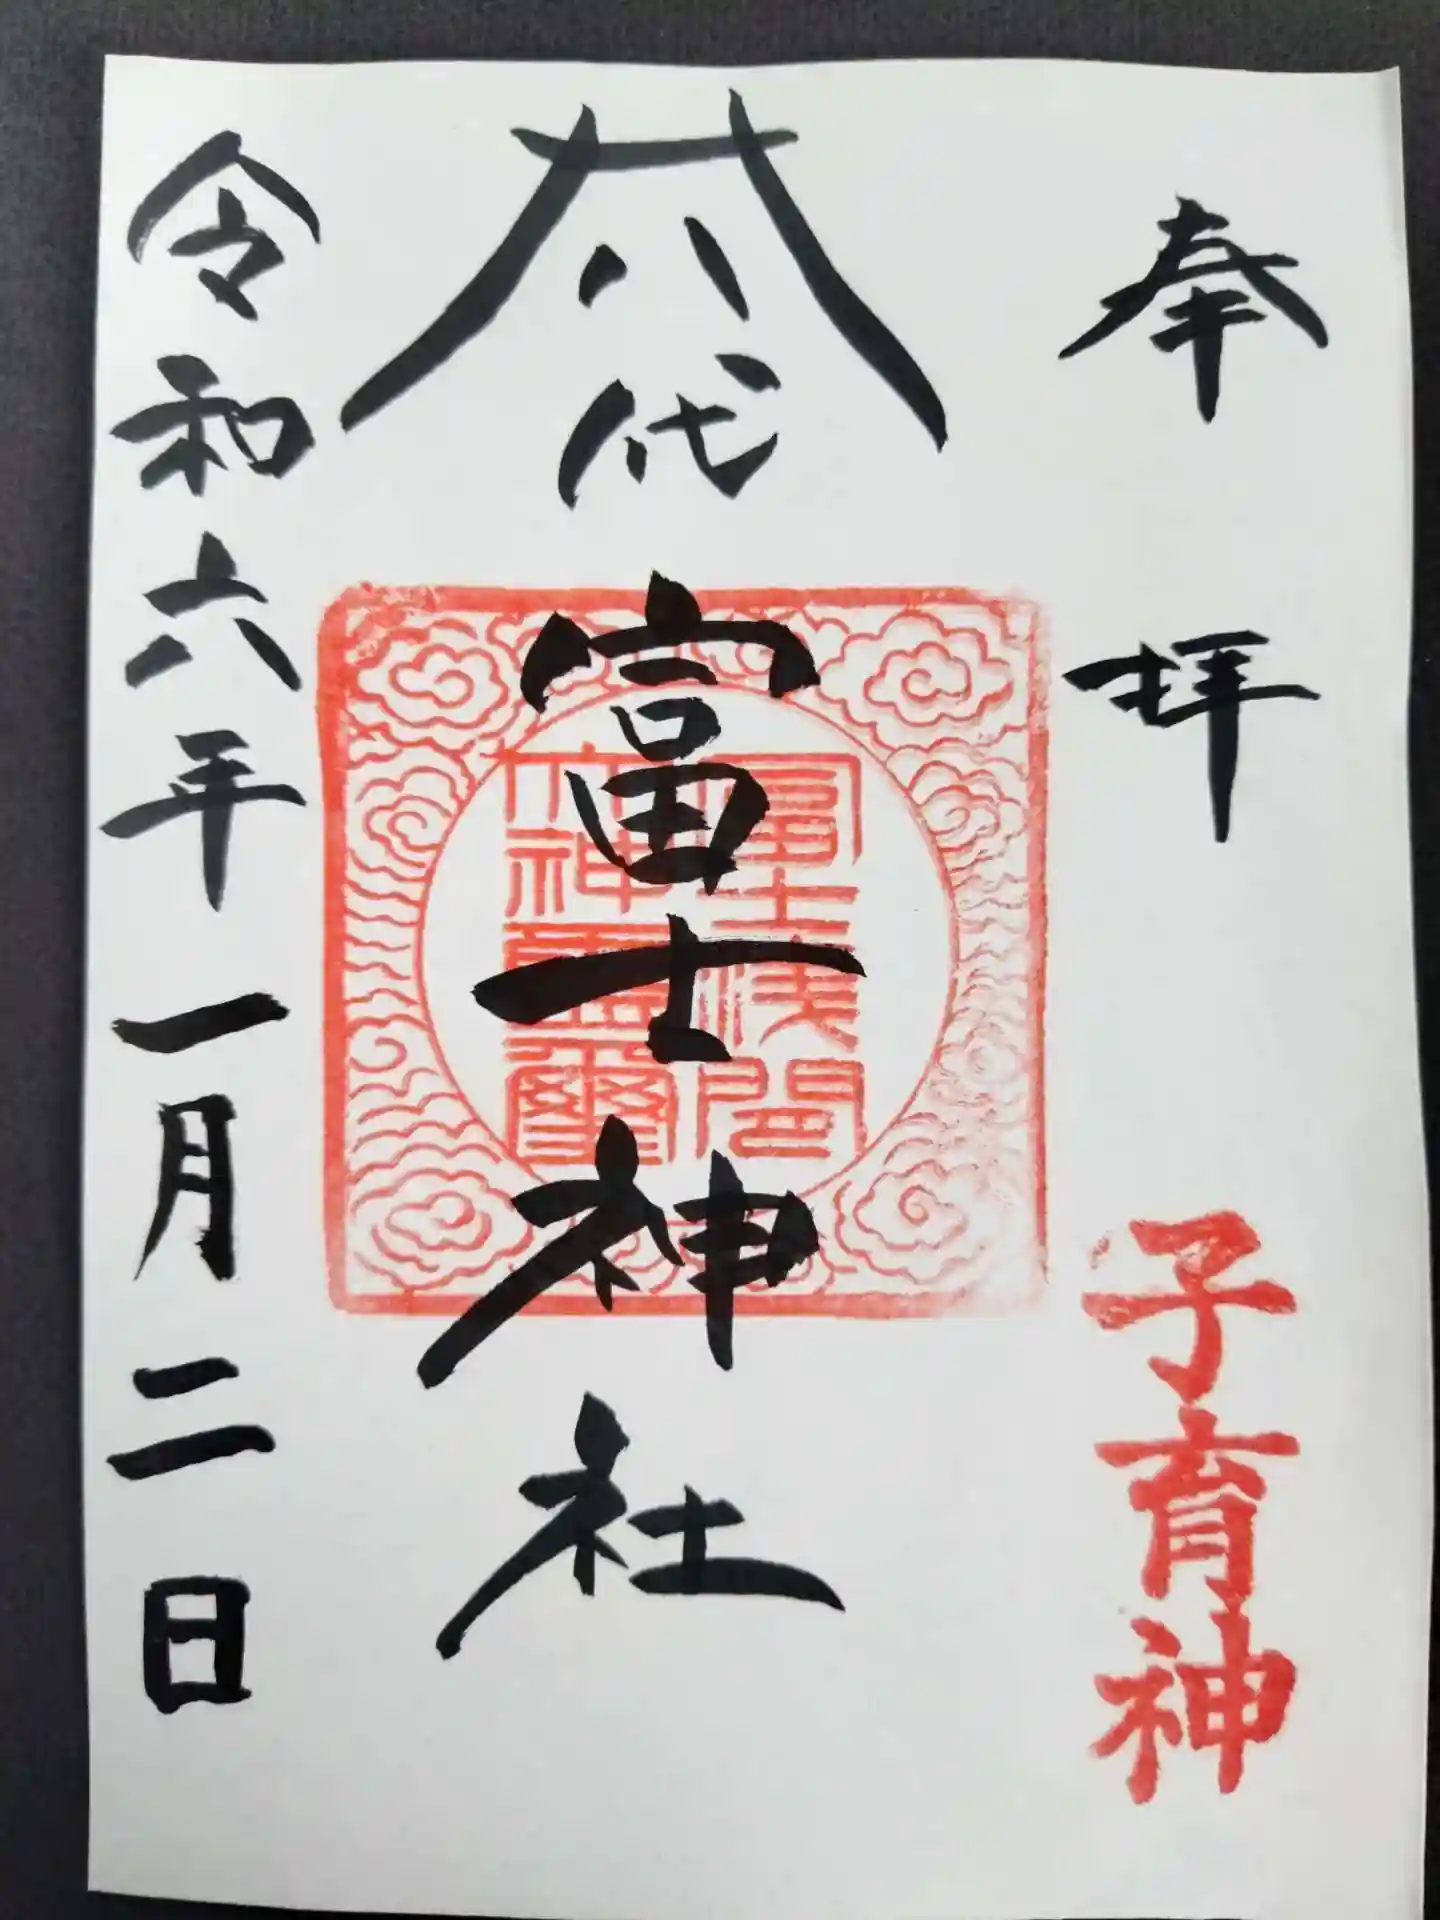 奉拝
子育神
八代
富士神社
富士浅間
大神璽
令和六年一月二日